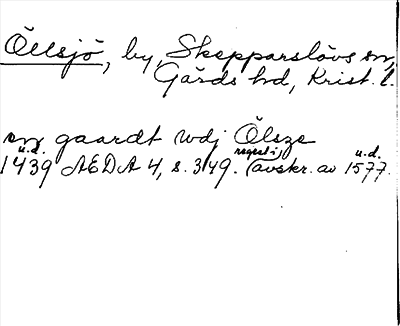 Öllsjö, by, Skepparslövs sn,
Gärds hd, Krist. l.
en gaardt udj Ölsze
u.d. regest i, u.d.
1439 AEDA 4, s. 349. (avskr. av 1577.